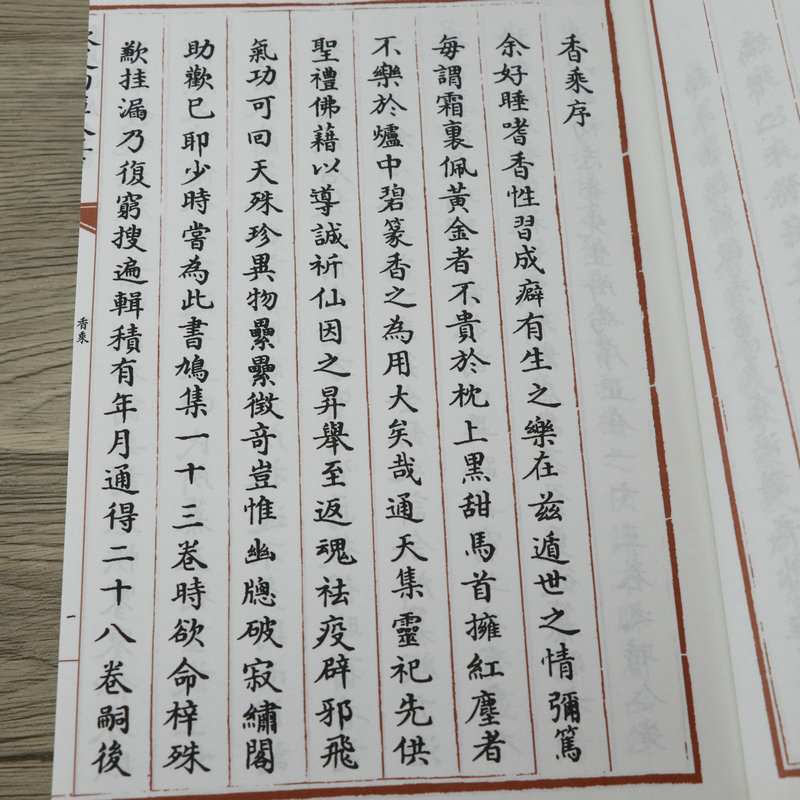 香乘序
余好睡嗜香性習成癖有生之樂在茲遁世之情彌篤
每謂霜裏佩黃金者不貴於枕上黑甜馬首擁紅塵者
不樂於爐中碧篆香之為用大矣哉通天集靈祀先供
聖禮佛藉以導誠祈仙因之昇舉至返魂祛疫辟邪飛
氣功可回天殊珍異物纍纍徵奇豈惟幽牕破寂繡閣
助歡已耶少時嘗為此書鳩集一十三卷時欲命梓殊
歉挂漏乃復窮搜遍輯積有年月通得二十八卷嗣後
香乘
一